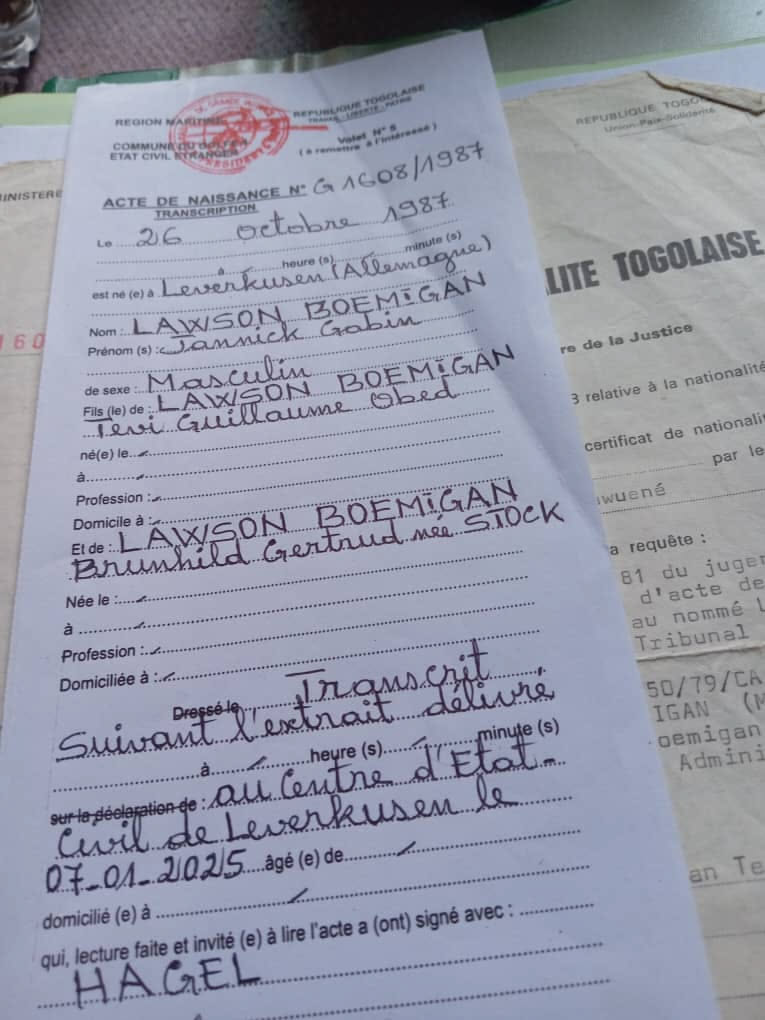 REGION MARITIME
COMMUNE DU GOLFE
ETAT CIVIL ETRANGER
REPUBLIQUE TOGOLAISE
TRAVAIL - LIBERTE - PATRIE
Volet N° 5
( à remettre à l'intéressé )
ACTE DE NAISSANCE N° G 1608/1987
TRANSCRIPTION
Le 26 octobre 1987
à heure (s) minute (s)
est né (e) à Leverkusen (Allemagne)
Nom : LAWSON BOEMIGAN
Prénom (s) : Jannick Gabin
de sexe : Masculin
Fils (le) de : LAWSON BOEMIGAN
Tevi Guillaume Obed
né(e) le
à
Profession :
Domicile à :
Et de : LAWSON BOEMIGAN
Brunhild Gertrud née STOCK
Née le :
à
Profession :
Domiciliée à :
Dressé le Transcrit
Suivant l'extrait délivré
à heure (s) minute (s)
sur la déclaration de : au Centre d'Etat
Civil de Leverkusen le
07-01-2025 âgé (e) de
domicilié (e) à
qui, lecture faite et invité (e) à lire l'acte a (ont) signé avec :
HAGEL
INISTERE
160
REPUBLIQUE TOGO
Union-Paix-Solidarité
LITE TOGOLAISE
re de la Justice
3 relative à la nationalité
certificat de nationali
par le
wuené
a requête :
81 du juge
d'acte de
au nommé L
Tribunal
50/79/CA
IGAN (M
oemigan
Admini
an Te